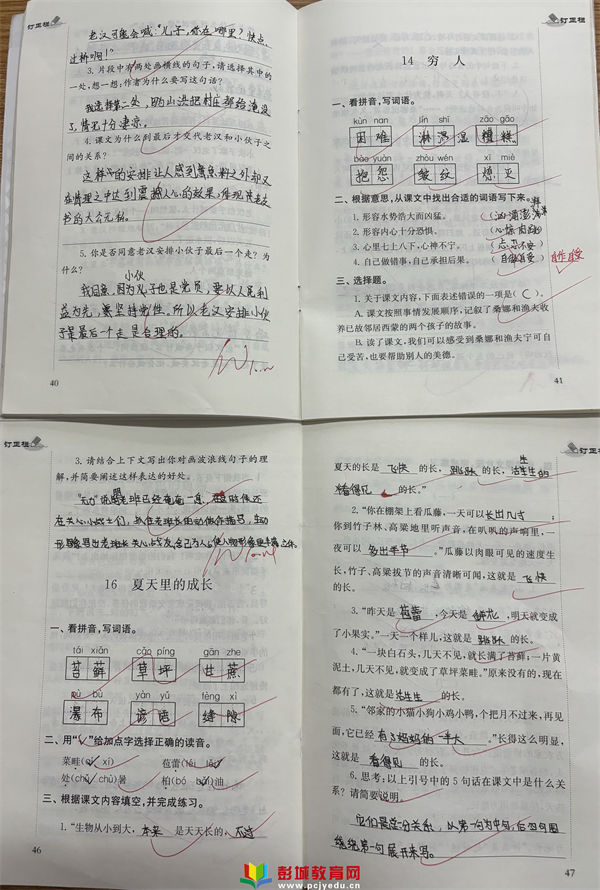 订正栏
老汉可能会喊:“儿子,你在哪里?快点,
过桥啊!”
3. 片段中有两处画横线的句子,请选择其中的
一处,想一想:作者为什么要写这句话?
我选择第二处,
山洪把村庄都给淹没
了,情况十分
4. 课文为什么到最后才交代老汉和小伙子之
间的关系?
这样的安排让人感到意料之外却又
在情理之中达到震撼人心的效果,体现
书的大公无私。
5. 你是否同意老汉安排小伙子最后一个走?为
什么?
小伙
我同意,因为儿子也是党员,要以人民利
益为先,要坚持党性。所以老汉安排小伙
子最后一个走是合理的。
40
订正栏
14 穷人
一、看拼音,写词语。
kùn nan lín shī zāo gāo
困难 淋湿 糟糕
bào yuàn zhòu wén xī miè
抱怨 皱纹 熄灭
二、根据意思,从课文中找出合适的词语写下来。
1. 形容水势浩大而凶猛。(汹涌澎湃)
2. 形容内心十分恐惧。(心惊肉跳)
3. 心里七上八下,心神不宁。(忐忑不安)
4. 自己做错事,自己承担后果。(自作自受)
三、选择题。
1. 关于课文内容,下面表述错误的一项是( C )。
A. 课文按照事情发展顺序,记叙了桑娜和渔夫收
养已故邻居西蒙的两个孩子的故事。
B. 读了课文,我们可以感受到桑娜和渔夫宁可自
己受苦,也要帮助别人的美德。
41
订正栏
3. 请结合上下文写出你对画波浪线句子的理
解,并简要阐述这样表达的好处。
老班长已经奄奄一息,
时候还
在关心小战士们,
老班长的动作
描写,生动
形象
写出老班长关心战友,舍己为人
16 夏天里的成长
一、看拼音,写词语。
tái xiǎn cǎo píng gān zhe
苔藓 草坪 甘蔗
pù bù yàn yǔ fèng xì
瀑布 谚语 缝隙
二、用“✓”给加点字选择正确的读音。
菜畦(qí xí) 苞蕾(léi lěi)
处(chǔ chù)暑 柏(bó bǎi)油
三、根据课文内容填空,并完成练习。
1. “生物从小到大,本来 是天天长的,不过
46
订正栏
夏天的长是 飞快 的长,跳跃 的长,活生生的
看得见 的长。”
2. “你在棚架上看瓜藤,一天可以长出几寸;
你到竹子林、高粱地里听声音,在叭叭的声响里,一
夜可以 多出半节 。”瓜藤以肉眼可见的速度生
长,竹子、高粱拔节的声音清晰可闻,这就是 飞快
的长。
3. “昨天是 苞蕾 ,今天是 鲜花 ,明天就变成
了小果实。”一天一个样儿,这就是 跳跃 的长。
4. “一块白石头,几天不见,就长满了苔藓;一片黄
泥土,几天不见,就变成了草坪菜畦。”原来没有的,现在
都有了,这就是 活生生 的长。
5. “邻家的小猫小狗小鸡小鸭,个把月不过来,再见
面,它已经 有了妈妈的一半大 。”长得这么明显,
这就是 看得见 的长。
6. 思考:以上引号中的5句话在课文中是什么关
系?请简要说明。
它们是总分关系,从第一句为中心句,后四句围
绕第一句展开来写。
47
彭城教育网
www.pcjyedu.cn